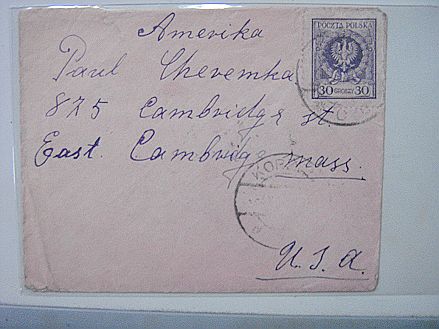 Amerika
POCZTA POLSKA
30 GROSZY 30
Paul Chevemka
875 Cambridge st.
East. Cambridge mass.
U.S.A.